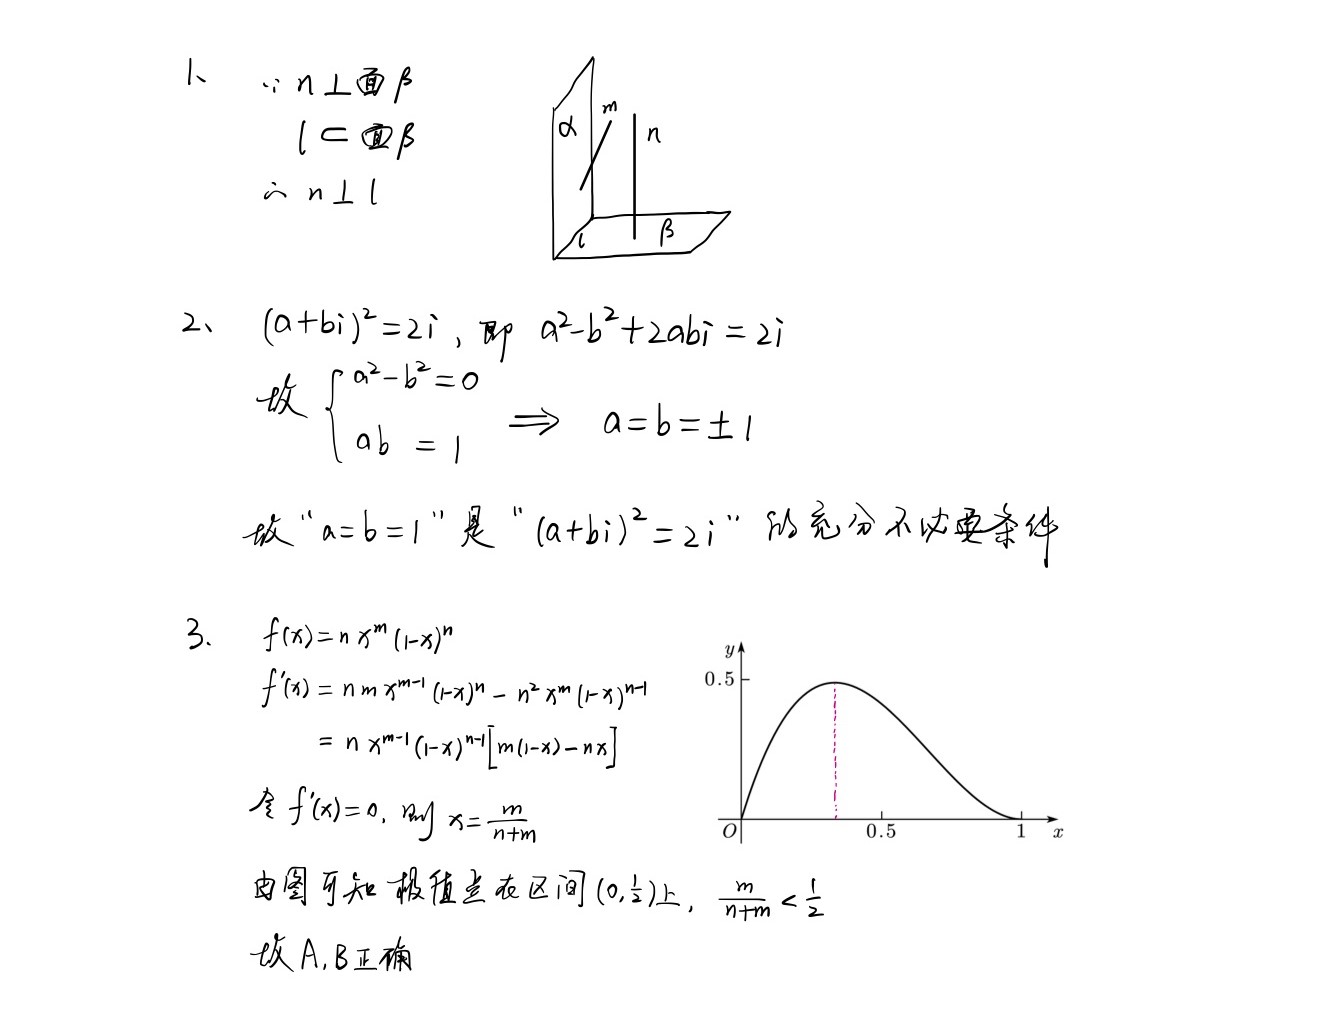 1、 ∵ n⊥面β
l⊂面β
∴ n⊥l
α m n
l β
2、 (a+bi)²=2i, 即 a²-b²+2abi=2i
故 { a²-b²=0
ab =1 ⟹ a=b=±1
故"a=b=1"是"(a+bi)²=2i"的充分不必要条件
3. f(x)=nx^m(1-x)^n
f'(x)=nmx^{m-1}(1-x)^n-n²x^m(1-x)^{n-1}
=nx^{m-1}(1-x)^{n-1}[m(1-x)-nx]
令f'(x)=0, 则 x=\frac{m}{n+m}
y
0.5
O 0.5 1 x
由图可知极值点在区间(0,\frac{1}{2})上, \frac{m}{n+m}<\frac{1}{2}
故A,B正确